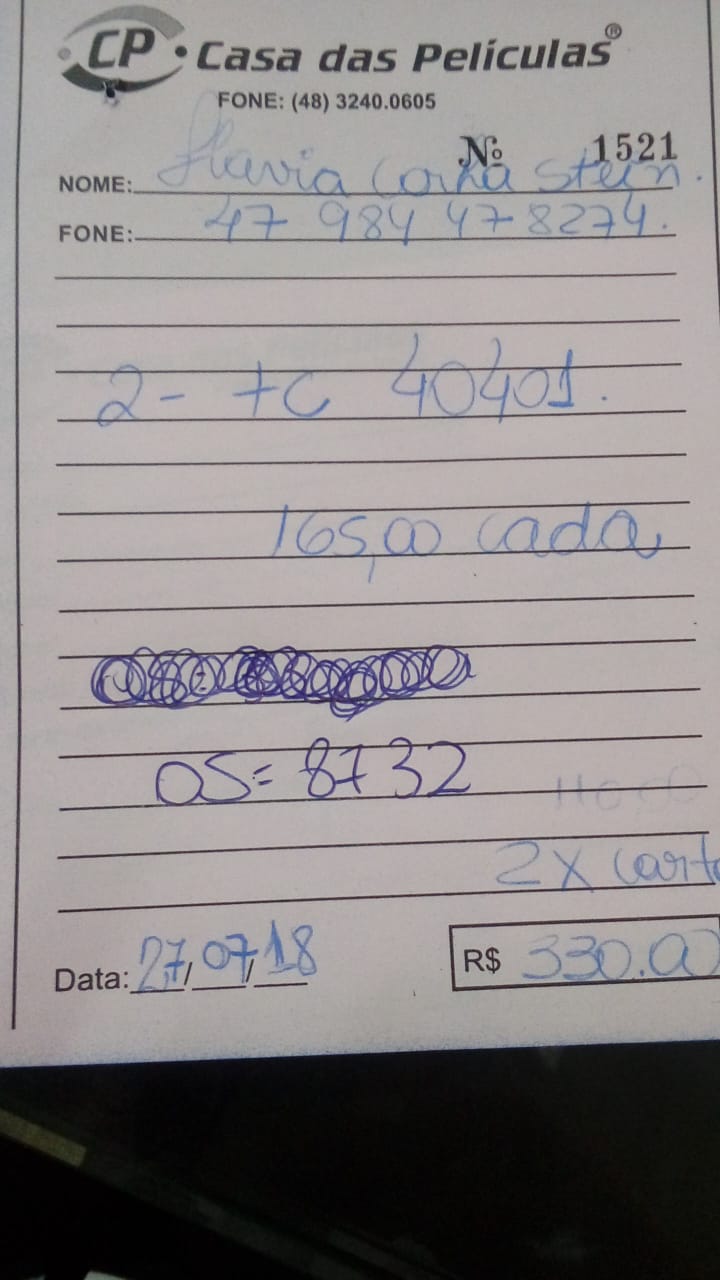 CP • Casa das Películas®
FONE: (48) 3240.0605
Nº 1521
NOME: Flavia Stein.
FONE: 47 984 478274.
2 - TC 40401.
165,00 cada
OS = 8732
2X cart
Data: 27/07/18
R$ 330.00